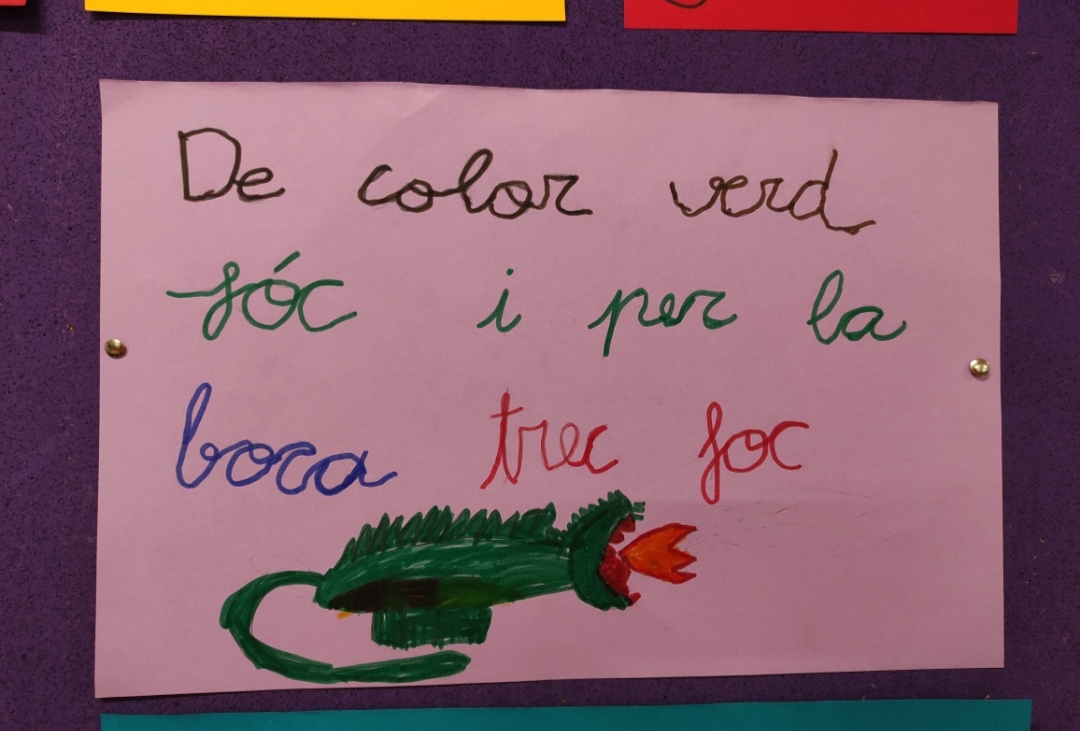 De color verd
sóc i per la
boca trec foc